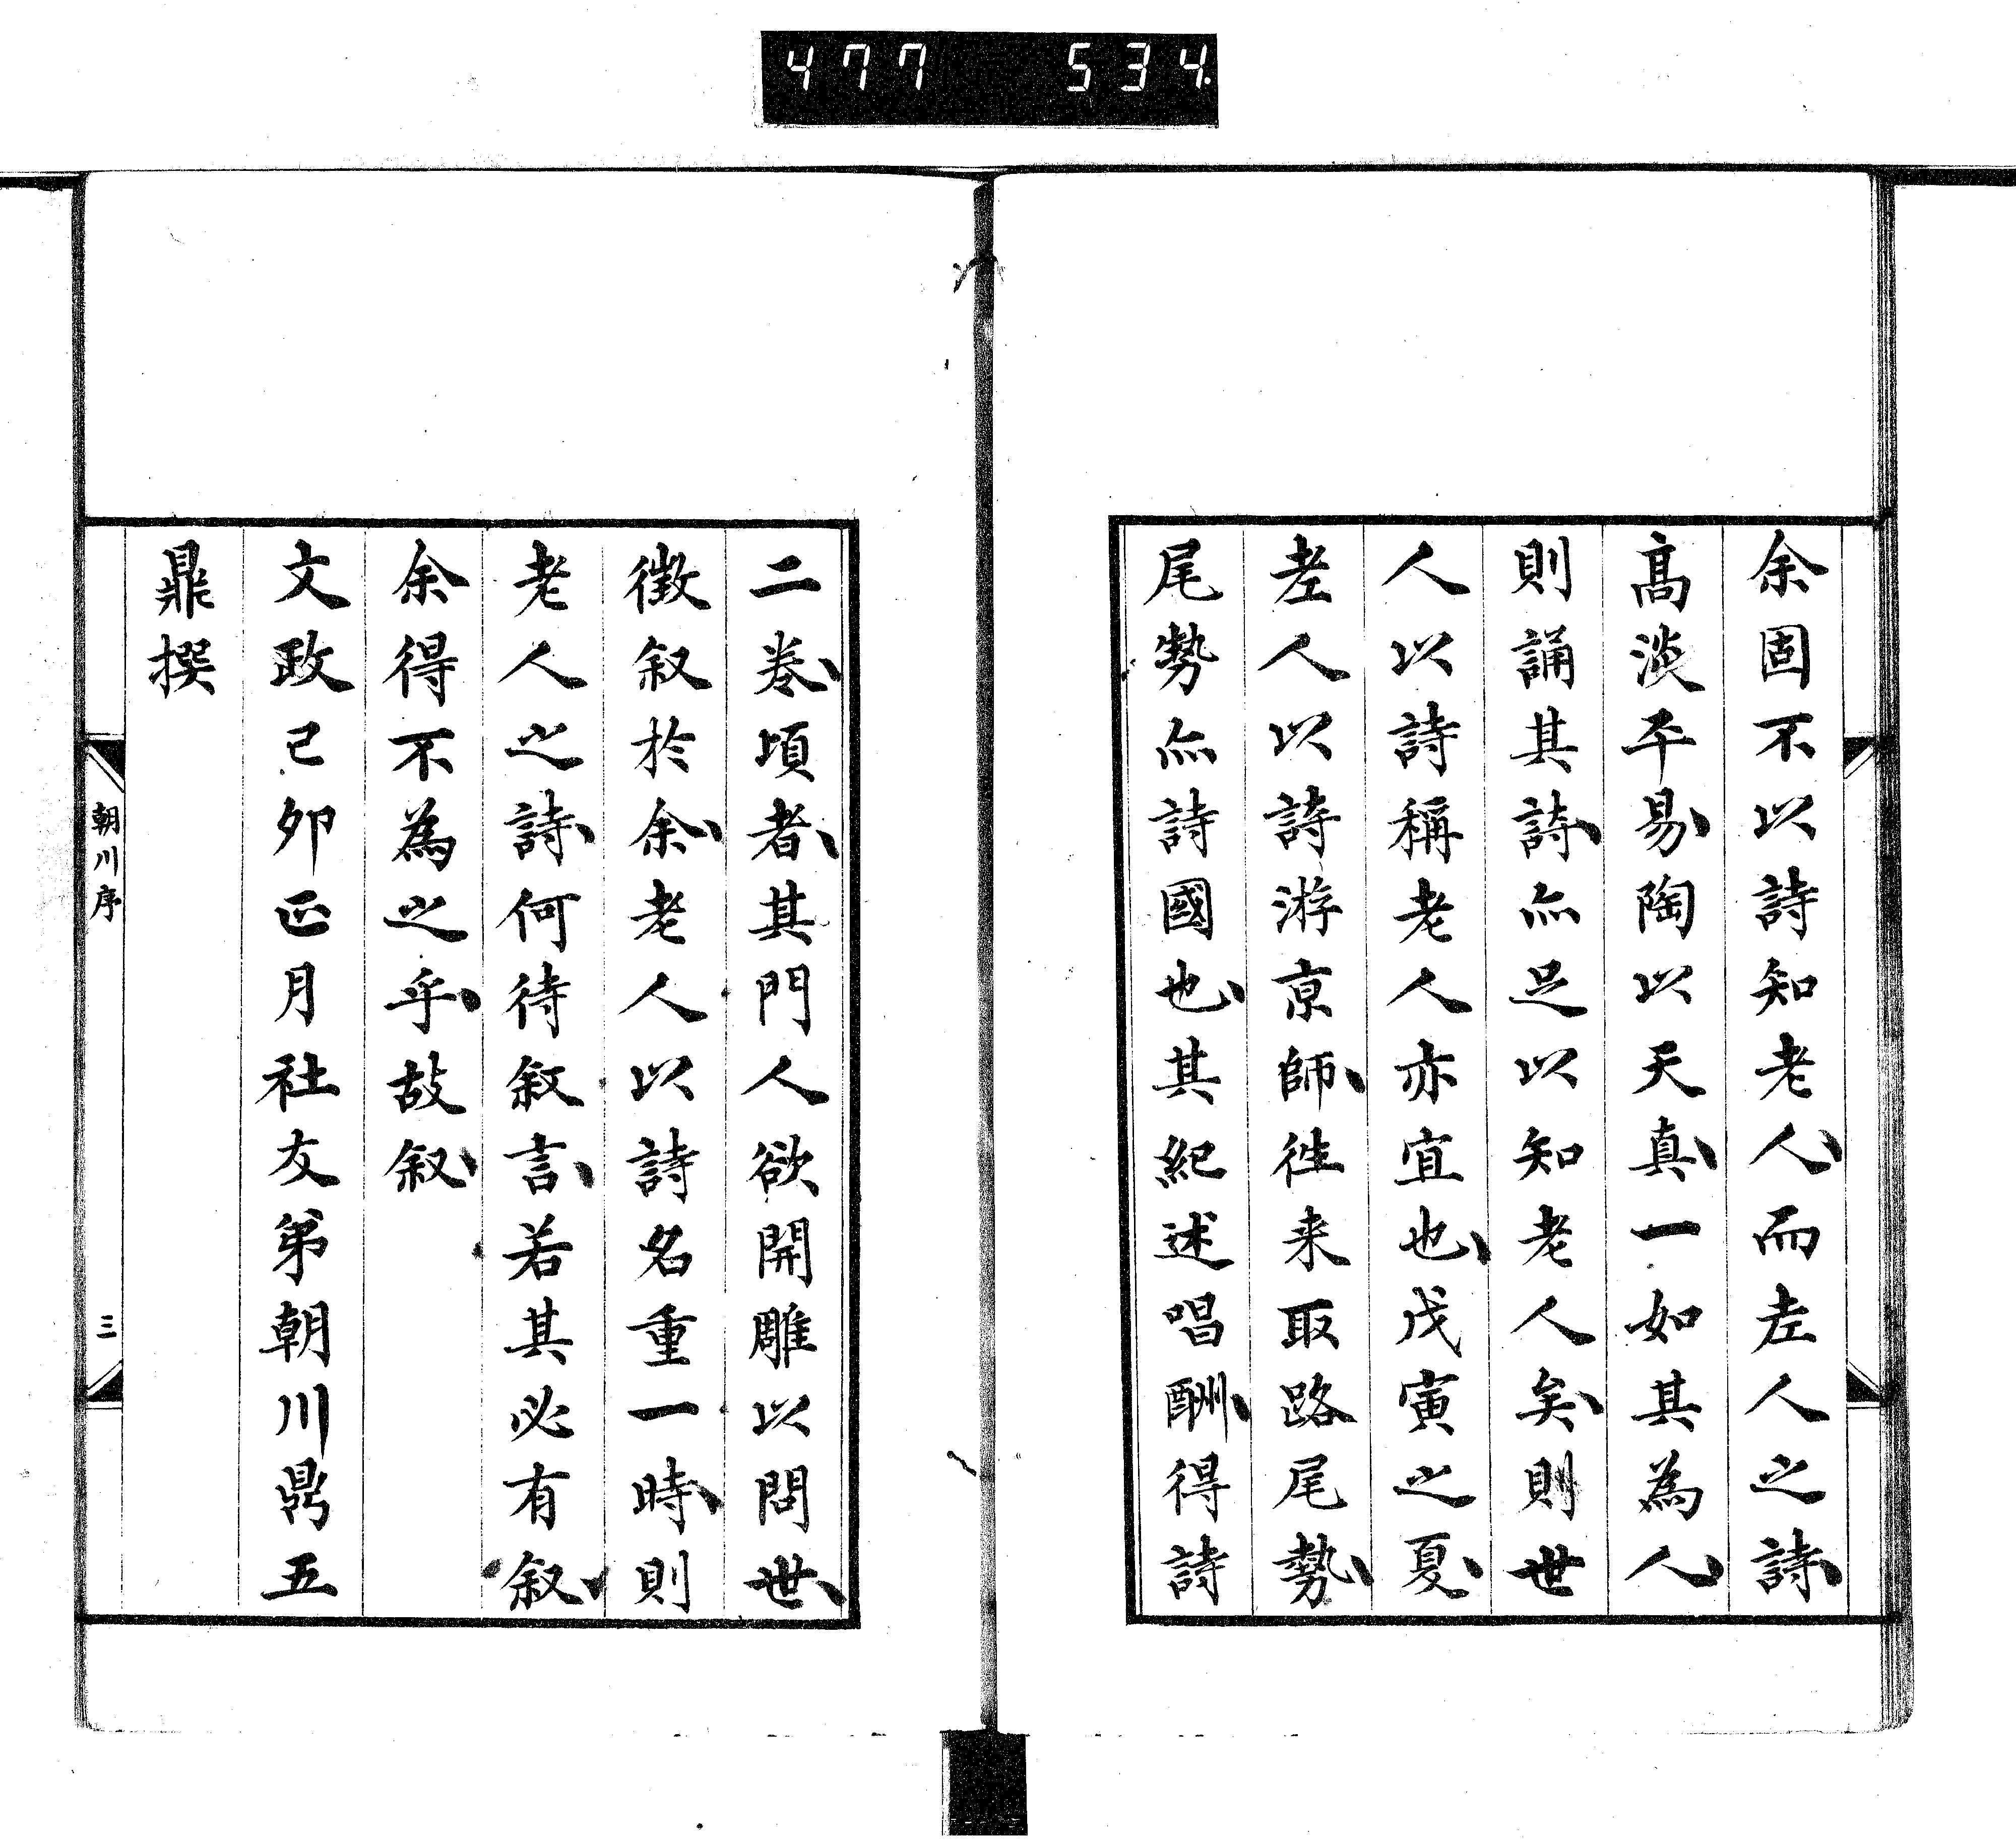 477 534.
余固不以詩知老人、而老人之詩、
高淡平易、陶以天真、一如其為人、
則誦其詩、亦足以知老人矣、則世
人以詩稱老人亦宜也、戊寅之夏、
老人以詩游京師、往来取路尾勢、
尾勢亦詩國也、其紀述唱酬、得詩
二巻、頃者、其門人欲開雕以問世、
徴叙於余、老人以詩名重一時、則
老人之詩、何待叙言、若其必有叙、
余得不為之乎、故叙、
文政己卯正月社友弟朝川鼎五
鼎撰
朝川序
三